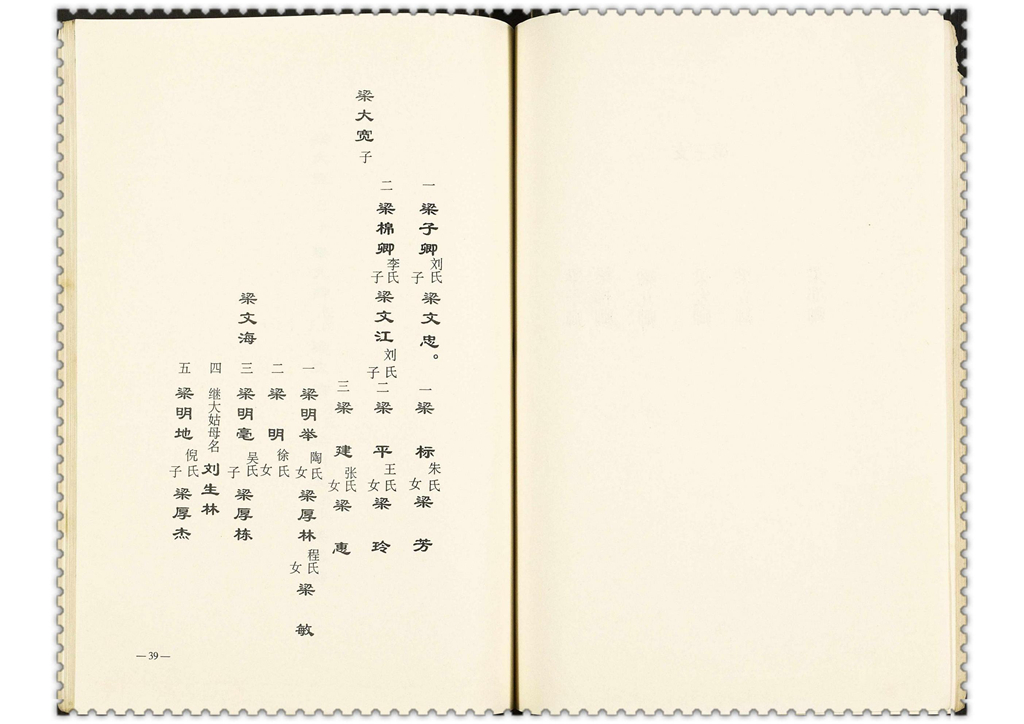 梁大宽子
一 梁子卿 刘氏 子 梁文忠。
二 梁棉卿 李氏 子 梁文江 刘氏 子
一 梁标 朱氏 女 梁芳
二 梁平 王氏 女 梁玲
三 梁建 张氏 女 梁惠
梁文海
一 梁明举 陶氏 女 梁厚林 程氏 女 梁敏
二 梁明 徐氏 女
三 梁明亳 吴氏 子 梁厚栋
四 继大姑母名 刘生林
五 梁明地 倪氏 子 梁厚杰
— 39 —